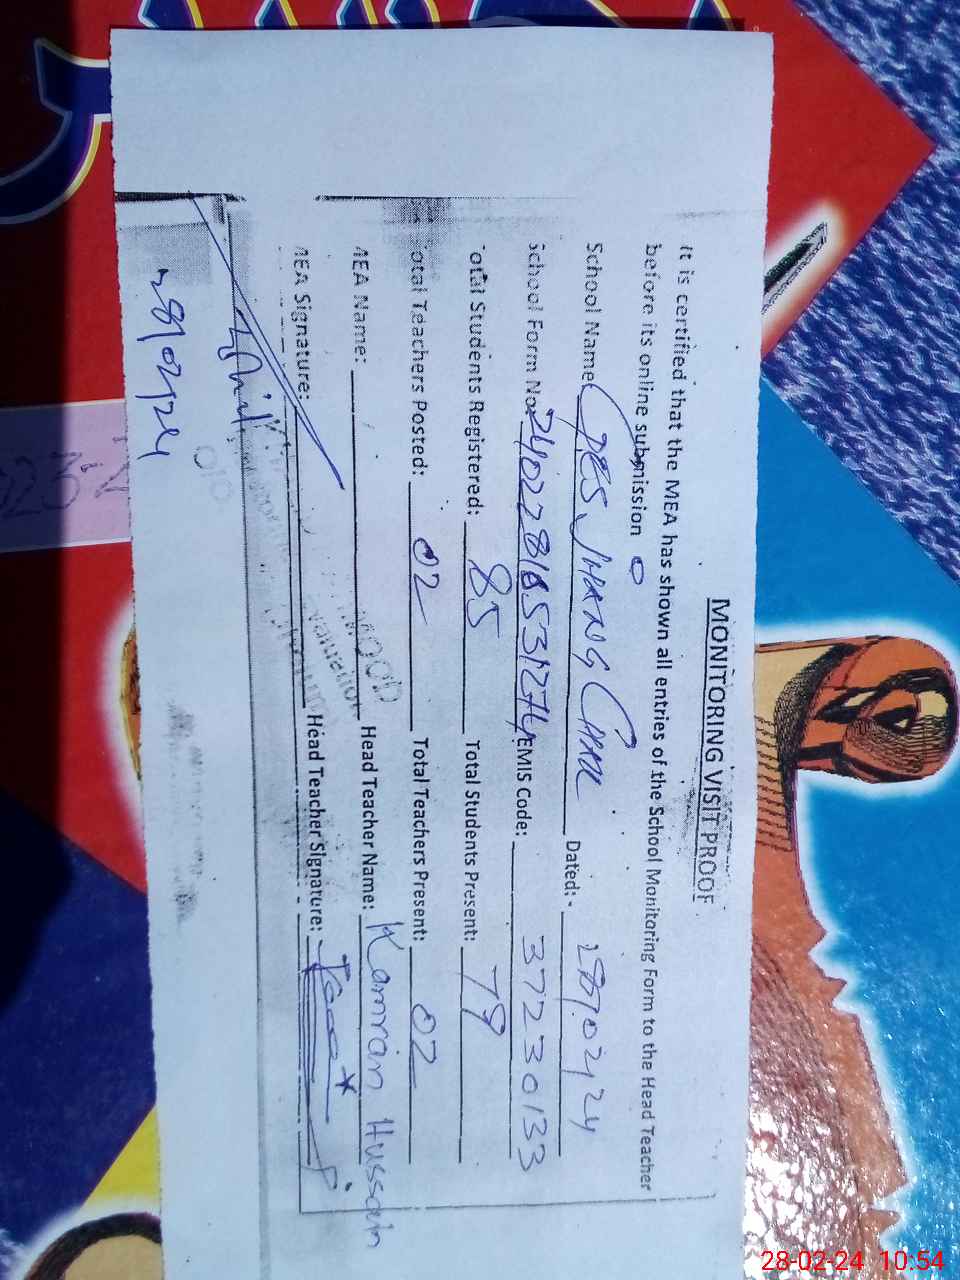 MONITORING VISIT PROOF
It is certified that the MEA has shown all entries of the School Monitoring Form to the Head Teacher
before its online submission
School Name GPS JHANG Dated:- 28/02/24
School Form No. EMIS Code: 37230133
Total Students Registered: 85 Total Students Present: 79
Total Teachers Posted: 02 Total Teachers Present: 02
MEA Name: Head Teacher Name: Kamran Hussain
MEA Signature: Head Teacher Signature:
28/02/24
28-02-24 10:54